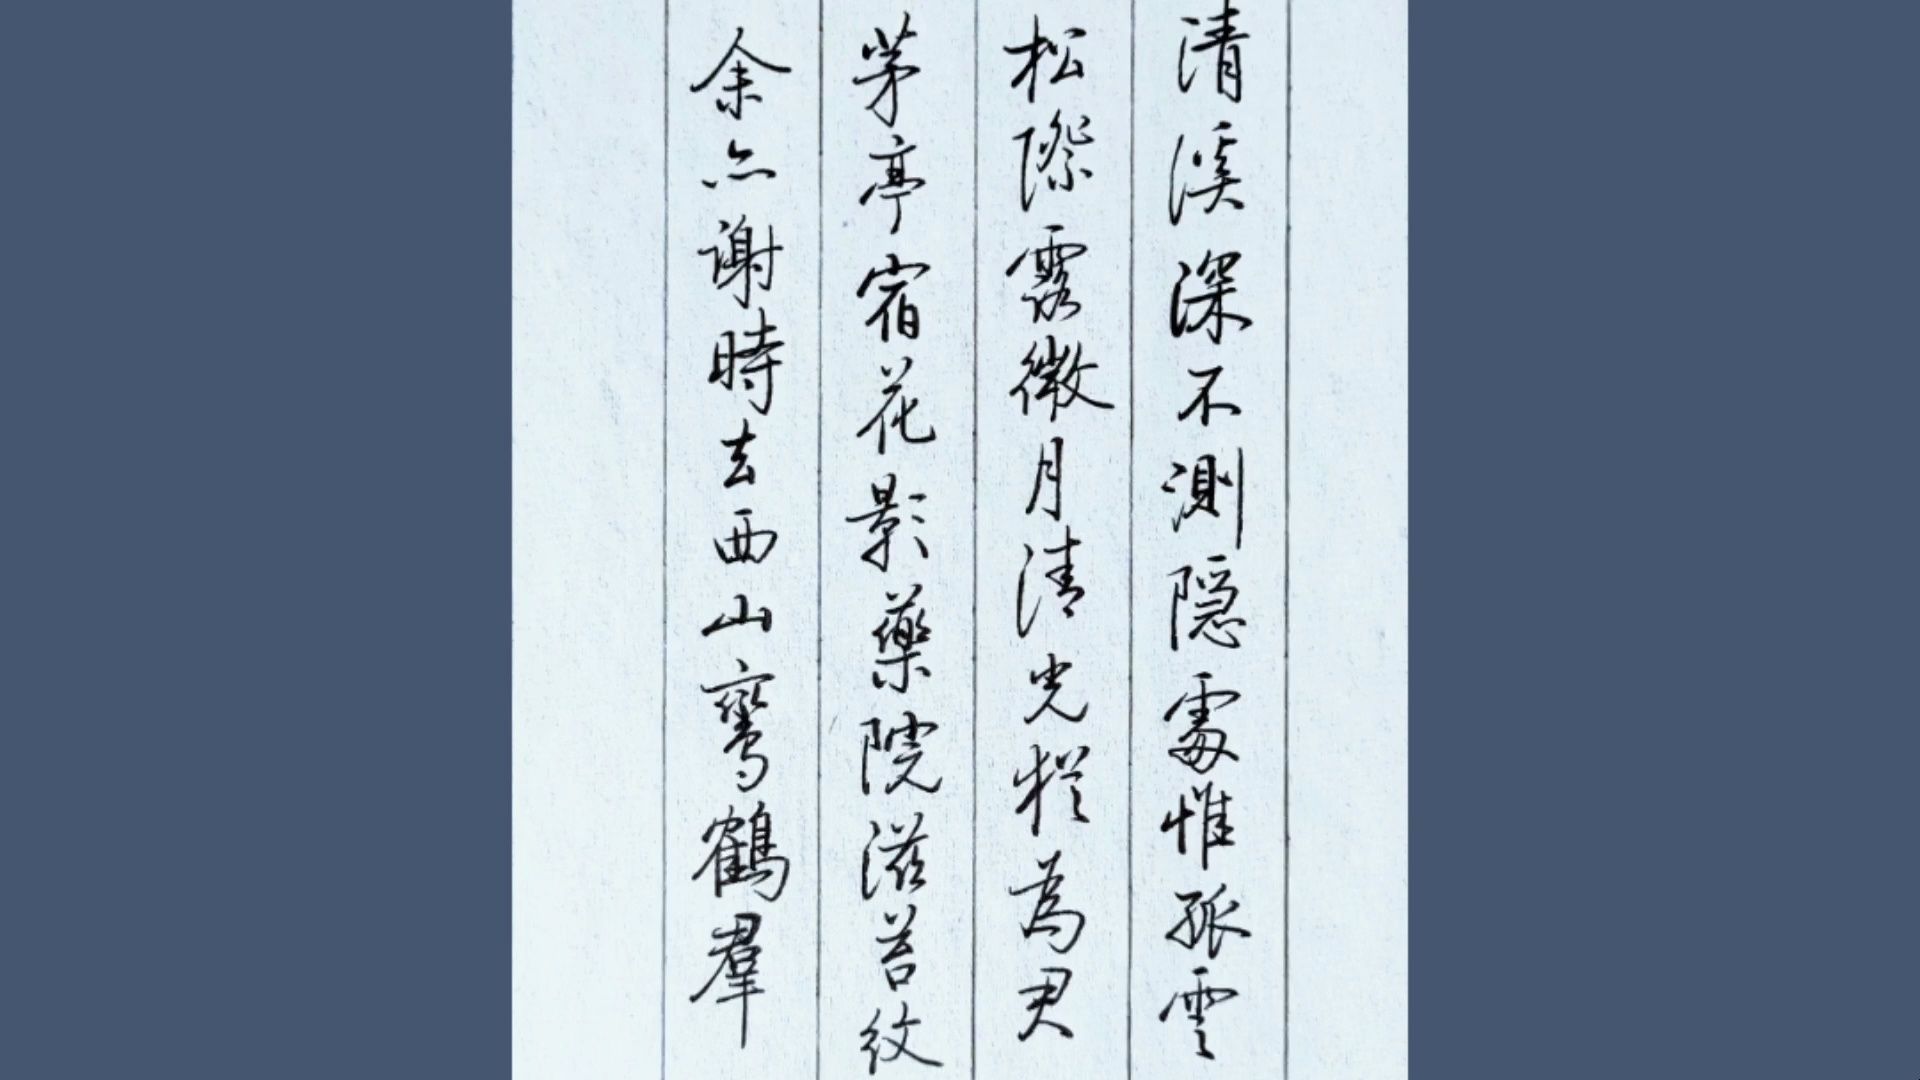 清溪深不測隐處惟孤雲
松際露微月清光猶為君
茅亭宿花影藥院滋苔紋
余亦謝時去西山鸞鶴羣